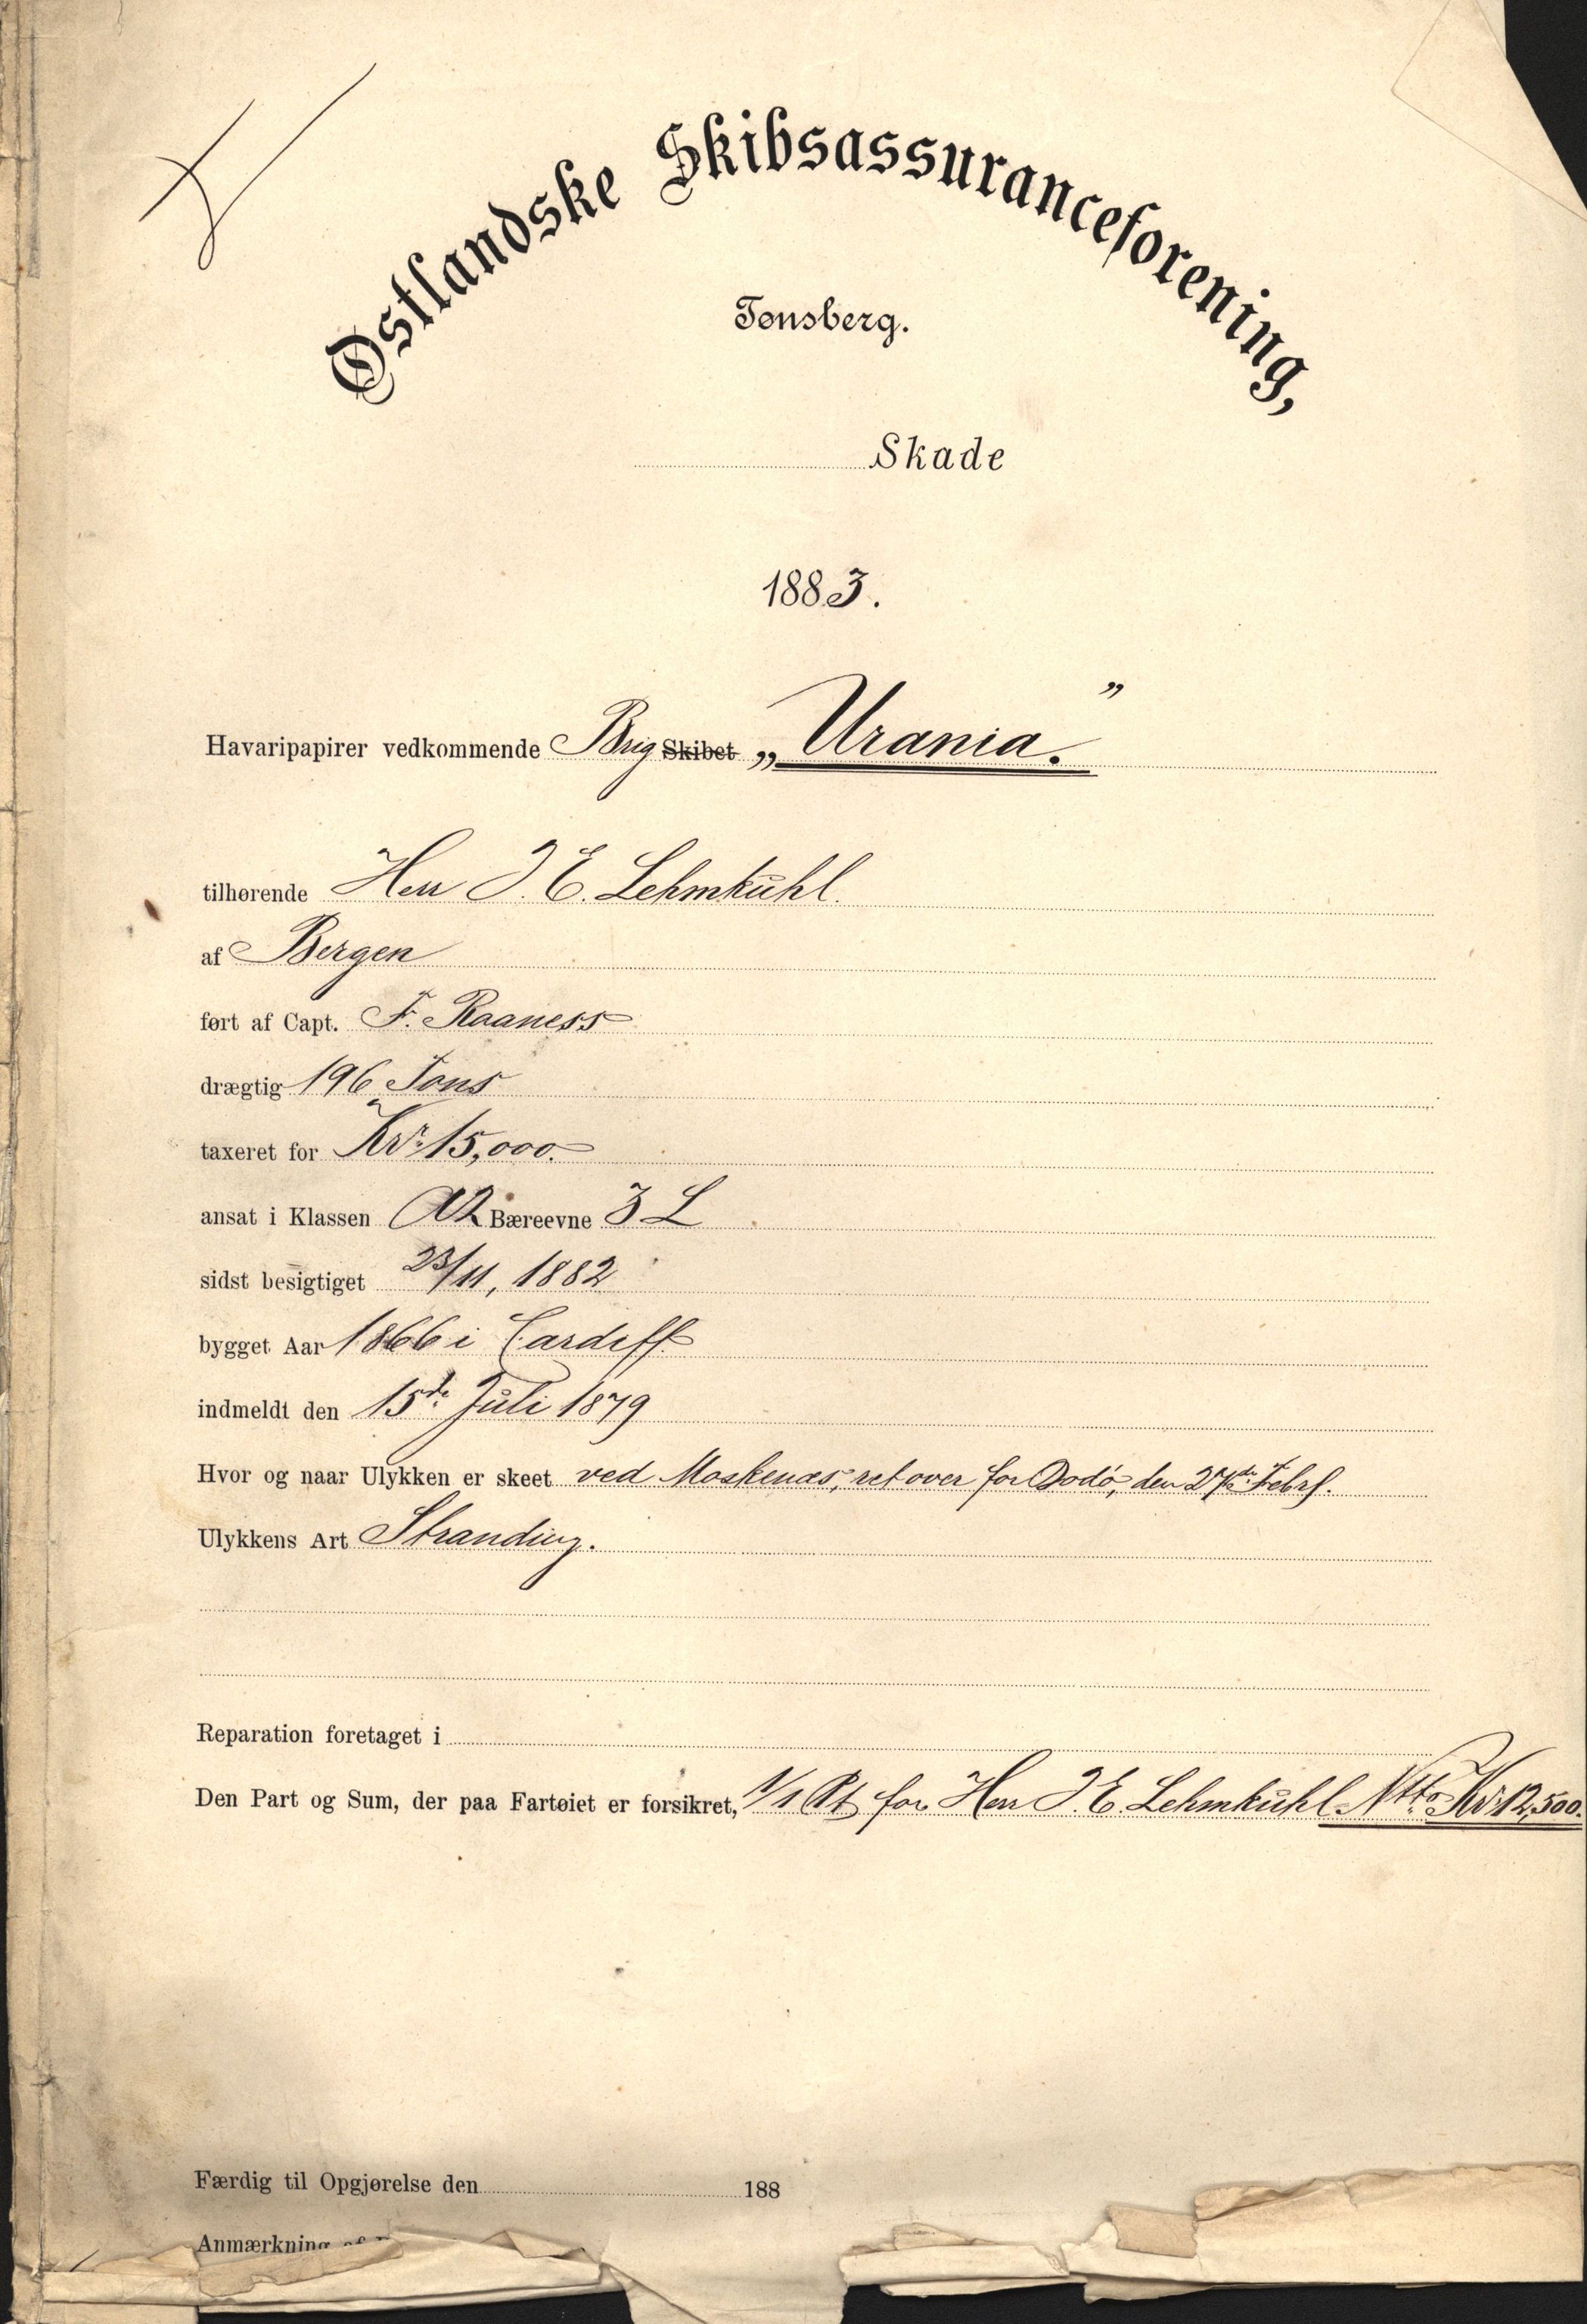 Østlandske Skibsassuranceforening,
Tønsberg.
Skade
1883.
Havaripapirer vedkommende Brig Skibet „Urania.”
tilhørende Herr J. E. Lehmkuhl.
af Bergen
ført af Capt. F. Raaness
drægtig 196 Tons
taxeret for Kr. 15,000.
ansat i Klassen A2 Bæreevne 3 L
sidst besigtiget 23/11, 1882
bygget Aar 1866 i Cardiff
indmeldt den 15de Juli 1879
Hvor og naar Ulykken er skeet ved Moskenæs, ret over for Bodø, den 27de Febr.
Ulykkens Art Stranding.
Reparation foretaget i
Den Part og Sum, der paa Fartøiet er forsikret, 1/1 Pt for Herr J. E. Lehmkuhl Ntto Kr. 12,500.
Færdig til Opgjørelse den 188
Anmærkning af